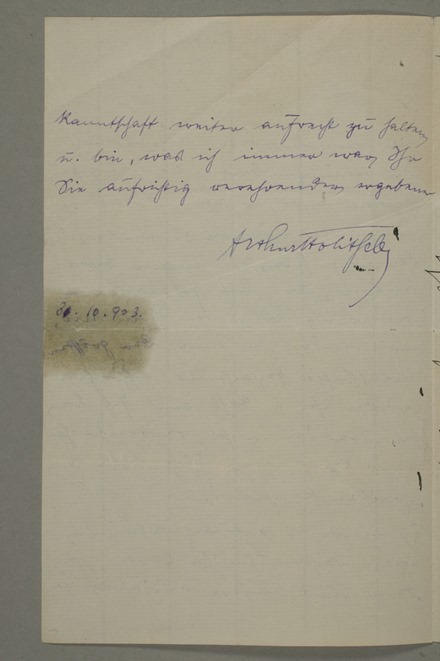 kanntschaft weiter aufrecht zu halten
u. bin, was ich immer war, Ihr
Sie aufrichtig verehrender, ergebener
Arthur Holitscher
31.10.903.